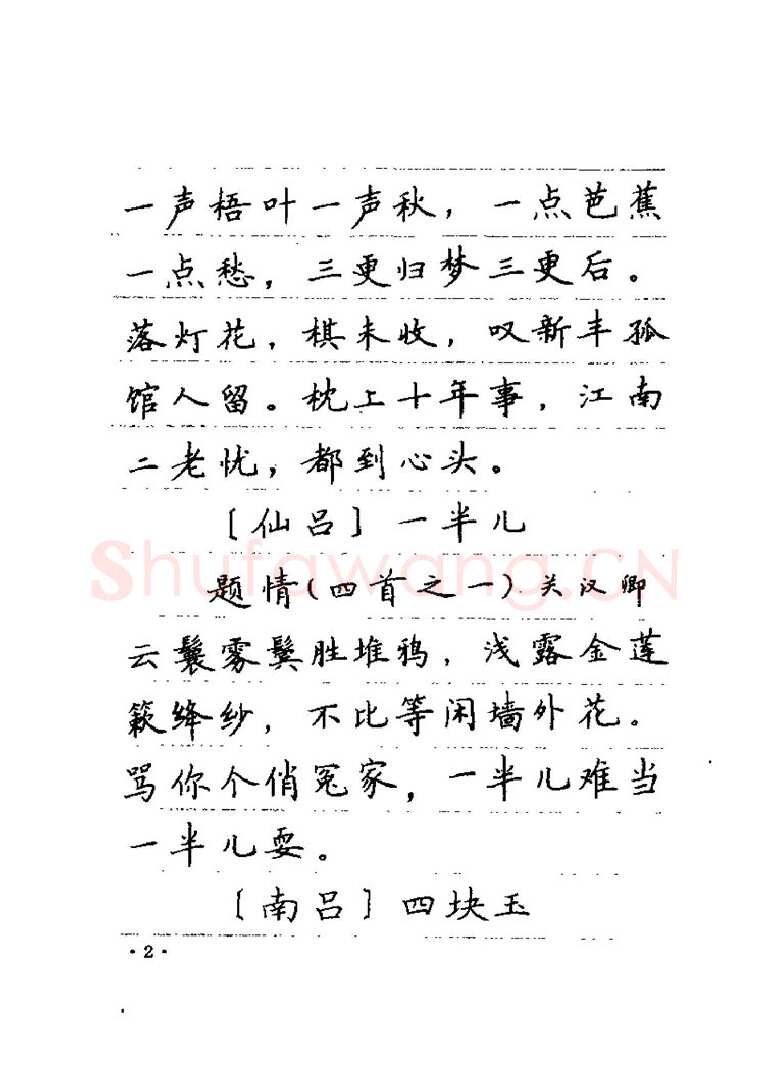 一声梧叶一声秋，一点芭蕉
一点愁，三更归梦三更后。
落灯花，棋未收，叹新丰孤
馆人留。枕上十年事，江南
二老忧，都到心头。
［仙吕］一半儿
Shufawang.CN
题情（四首之一）关汉卿
云鬟雾鬓胜堆鸦，浅露金莲
簌绛纱，不比等闲墙外花。
骂你个俏冤家，一半儿难当
一半儿耍。
［南吕］四块玉
·2·